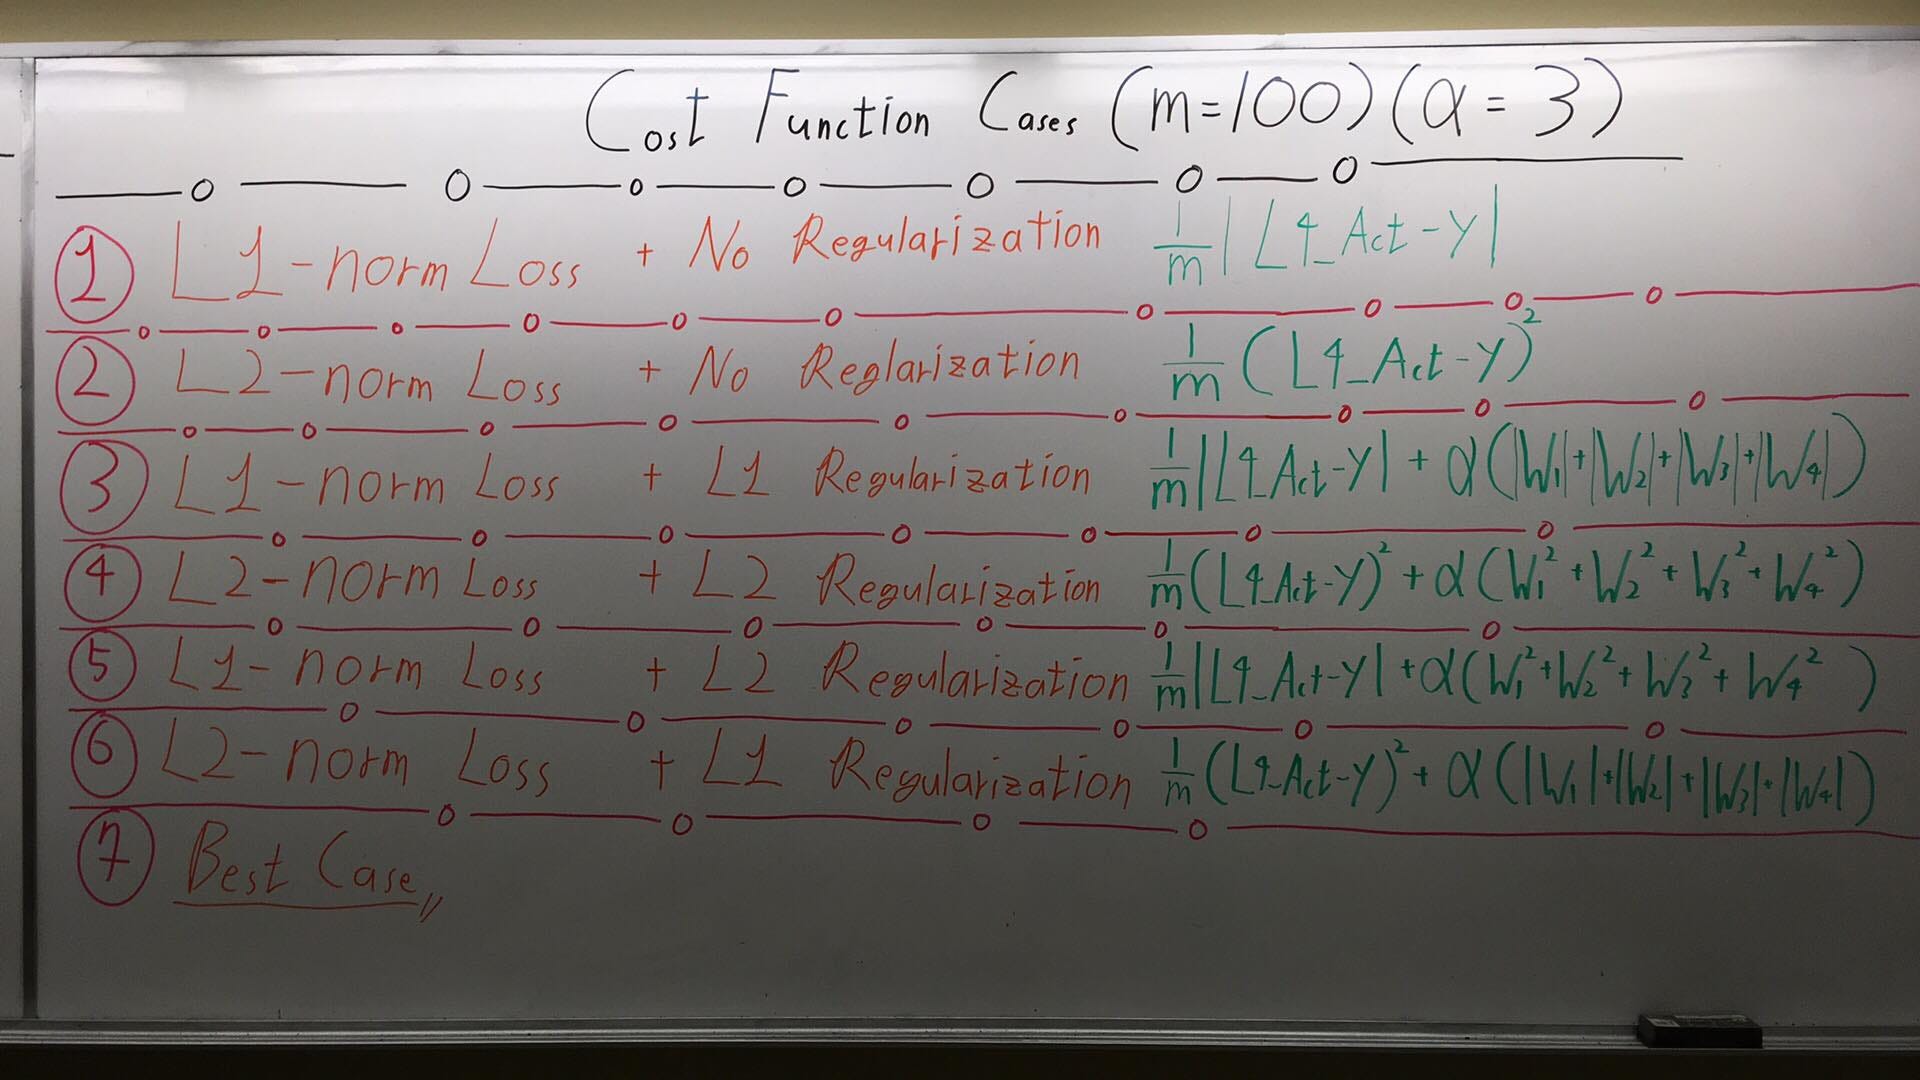 Cost Function Cases (m=100)(α = 3)
① L1-norm Loss + No Regularization 1/m |L4_Act-Y|
② L2-norm Loss + No Reglarization 1/m (L4_Act-Y)²
③ L1-norm Loss + L1 Regularization 1/m |L4_Act-Y| + α(|W₁|+|W₂|+|W₃|+|W₄|)
④ L2-norm Loss + L2 Regularization 1/m (L4_Act-Y)² + α(W₁²+W₂²+W₃²+W₄²)
⑤ L1-norm Loss + L2 Regularization 1/m |L4_Act-Y| + α(W₁²+W₂²+W₃²+W₄²)
⑥ L2-norm Loss + L1 Regularization 1/m (L4_Act-Y)² + α(|W₁|+|W₂|+|W₃|+|W₄|)
⑦ Best Case,,